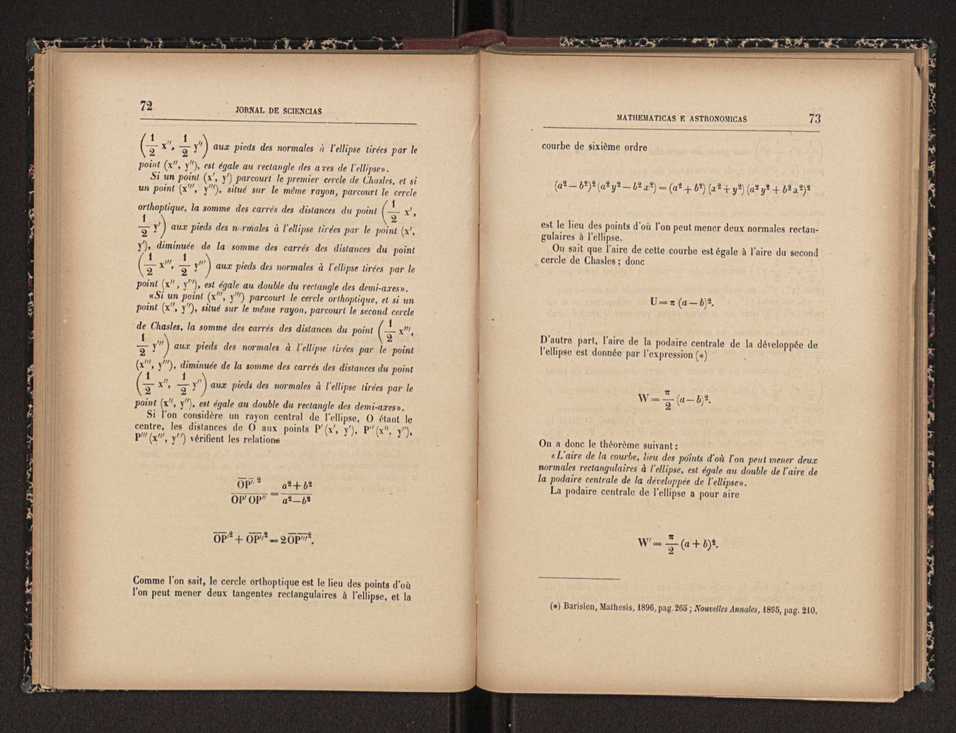 72
JORNAL DE SCIENCIAS
(1/2 x'', 1/2 y'') aux pieds des normales à l'ellipse tirées par le
point (x'', y''), est égale au rectangle des axes de l'ellipse».
Si un point (x', y') parcourt le premier cercle de Chasles, et si
un point (x''', y'''), situé sur le même rayon, parcourt le cercle
orthoptique, la somme des carrés des distances du point (1/2 x',
1/2 y') aux pieds des normales à l'ellipse tirées par le point (x',
y'), diminuée de la somme des carrés des distances du point
(1/2 x''', 1/2 y''') aux pieds des normales à l'ellipse tirées par le
point (x'', y''), est égale au double du rectangle des demi-axes».
«Si un point (x''', y''') parcourt le cercle orthoptique, et si un
point (x'', y''), situé sur le même rayon, parcourt le second cercle
de Chasles, la somme des carrés des distances du point (1/2 x''',
1/2 y''') aux pieds des normales à l'ellipse tirées par le point
(x''', y'''), diminuée de la somme des carrés des distances du point
(1/2 x'', 1/2 y'') aux pieds des normales à l'ellipse tirées par le
point (x'', y''), est égale au double du rectangle des demi-axes».
Si l'on considère un rayon central de l'ellipse, O étant le
centre, les distances de O aux points P' (x', y'), P'' (x'', y''),
P''' (x''', y''') vérifient les relations
OP'''² / OP' OP'' = a²+b² / a²—b²
OP'² + OP''² = 2OP'''².
Comme l'on sait, le cercle orthoptique est le lieu des points d'où
l'on peut mener deux tangentes rectangulaires à l'ellipse, et la
MATHEMATICAS E ASTRONOMICAS
73
courbe de sixième ordre
(a²—b²)² (a²y²—b²x²) = (a²+b²) (x²+y²) (a²y²+b²x²)²
est le lieu des points d'où l'on peut mener deux normales rectan-
gulaires à l'ellipse.
On sait que l'aire de cette courbe est égale à l'aire du second
cercle de Chasles; donc
U = π (a—b)².
D'autre part, l'aire de la podaire centrale de la développée de
l'ellipse est donnée par l'expression (*)
W = π/2 (a—b)².
On a donc le théorème suivant:
«L'aire de la courbe, lieu des points d'où l'on peut mener deux
normales rectangulaires à l'ellipse, est égale au double de l'aire de
la podaire centrale de la développée de l'ellipse».
La podaire centrale de l'ellipse a pour aire
W' = π/2 (a+b)².
(*) Barisien, Mathesis, 1896, pag. 265; Nouvelles Annales, 1895, pag. 210.